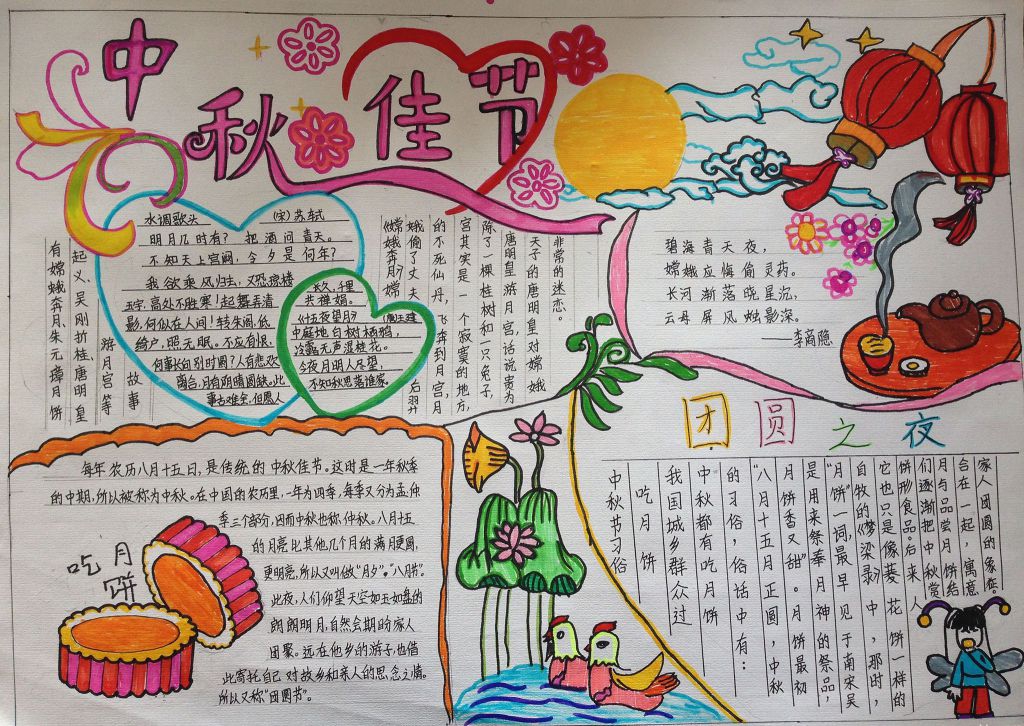 中秋佳节
水调歌头 (宋)苏轼
明月几时有? 把酒问青天。
不知天上宫阙,今夕是何年?
我欲乘风归去,又恐琼楼
玉宇,高处不胜寒!起舞弄清
影,何似在人间!转朱阁,低
绮户,照无眠。不应有恨,
何事长向别时圆?人有悲欢
离合,月有阴晴圆缺。此
事古难全。但愿人
长久,千里
共婵娟。
《十五夜望月》(唐)王建
中庭地白树栖鸦,
冷露无声湿桂花。
今夜月明人尽望,
不知秋思落谁家。
有嫦娥奔月、朱元璋月饼
起义、吴刚折桂、唐明皇
游月宫等
故事
《嫦娥奔月》嫦
娥偷了丈夫后羿
的不死仙丹,飞奔到月宫,月
宫其实是一个寂寞的地方,
除了一棵桂树和一只兔子,
唐明皇游月宫,话说贵为
天子的唐明皇对嫦娥
非常的迷恋。
碧海青天夜,
嫦娥应悔偷灵药。
长河渐落晓星沉,
云母屏风烛影深。
—李商隐
每年农历八月十五日,是传统的中秋佳节。这时是一年秋季
的中期,所以被称为中秋。在中国的农历里,一年为四季,每季又分为孟、仲
季三个部分,因而中秋也称仲秋。八月十五
的月亮比其他几个月的满月更圆,
更明亮,所以又叫做“月夕”。“八月节”。
此夜,人们仰望天空如玉如盘的
朗朗明月,自然会期盼家人
团聚。远在他乡的游子,也借
此寄托自己对故乡和亲人的思念之情。
所以又称“团圆节”。
吃月饼
团圆之夜
中秋节习俗
吃月饼
我国城乡群众过
中秋都有吃月饼
的习俗,俗话中有:
“八月十五月正圆,中秋
月饼香又甜”。月饼最初
是用来祭奉月神的祭品,
“月饼”一词,最早见于南宋吴
自牧的《梦梁录》中,那时,
它也只是像菱花饼一样的
饼形食品。后来人
们逐渐把中秋赏
月与品尝月饼结
合在一起,寓意
家人团圆的象征。